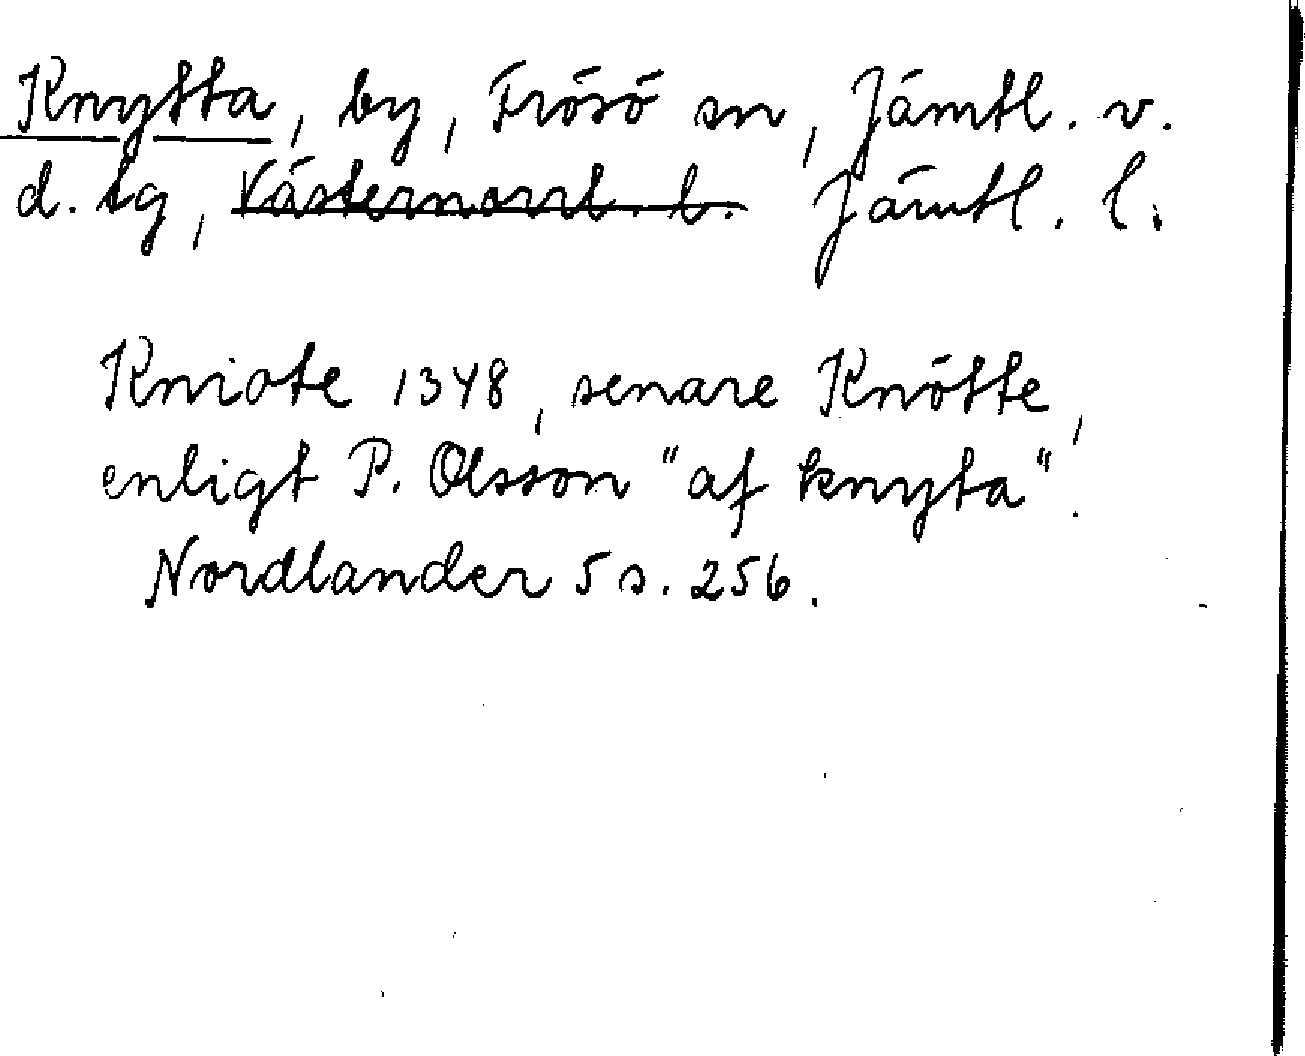 Knytta, by, Frösö sn, Jämtl. v.
d. tg, Västernorrl. l. Jämtl. l.
Kniote 1348, senare Knötte,
enligt P. Olsson "af knyta".
Nordlander 5 s. 256.